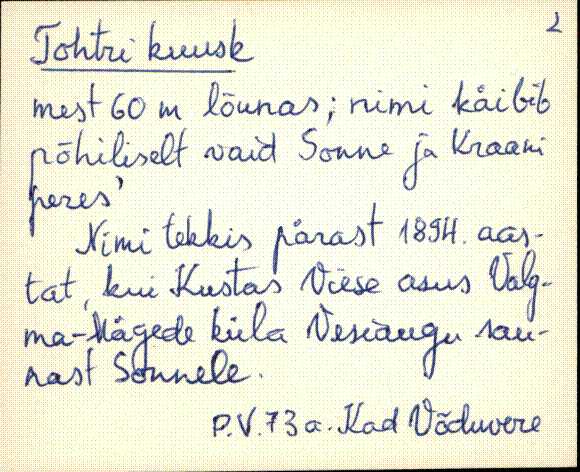 2
Tohtri kuusk
mest 60 m lõunas; nimi käibib
põhiliselt vaid Sonne ja Kraani
peres'
Nimi tekkis pärast 1894. aas-
tat, kui Kustas Viese asus Valg-
ma-Mägede küla Vesiaugu sau-
nast Sonnele.
P.V. 73 a. Kad Võduvere